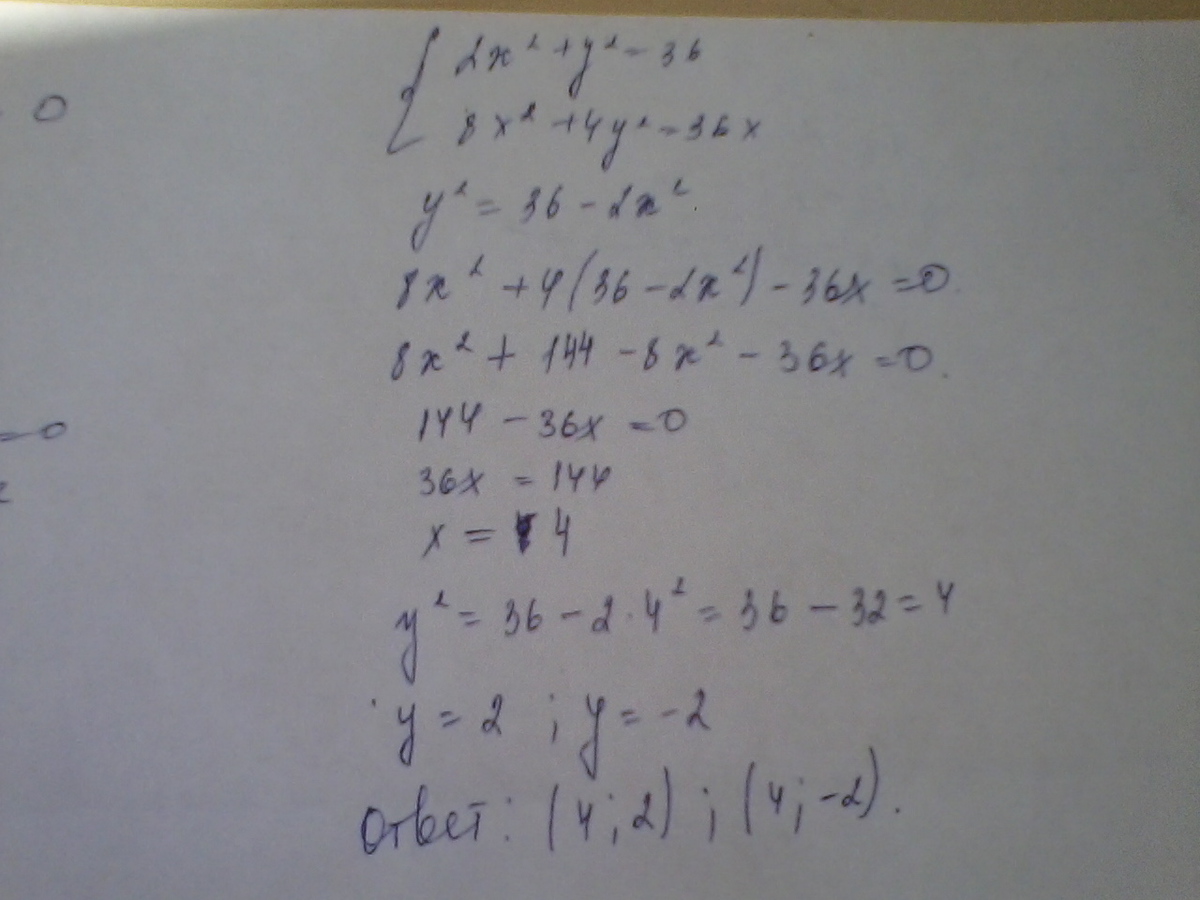 2x² + y² = 36
8x² + 4y² = 36x
y² = 36 - 2x²
8x² + 4(36 - 2x²) - 36x = 0.
8x² + 144 - 8x² - 36x = 0.
144 - 36x = 0
36x = 144
x = 4
y² = 36 - 2·4² = 36 - 32 = 4
y = 2 ; y = -2
Ответ: (4; 2) ; (4; -2).
0
=0